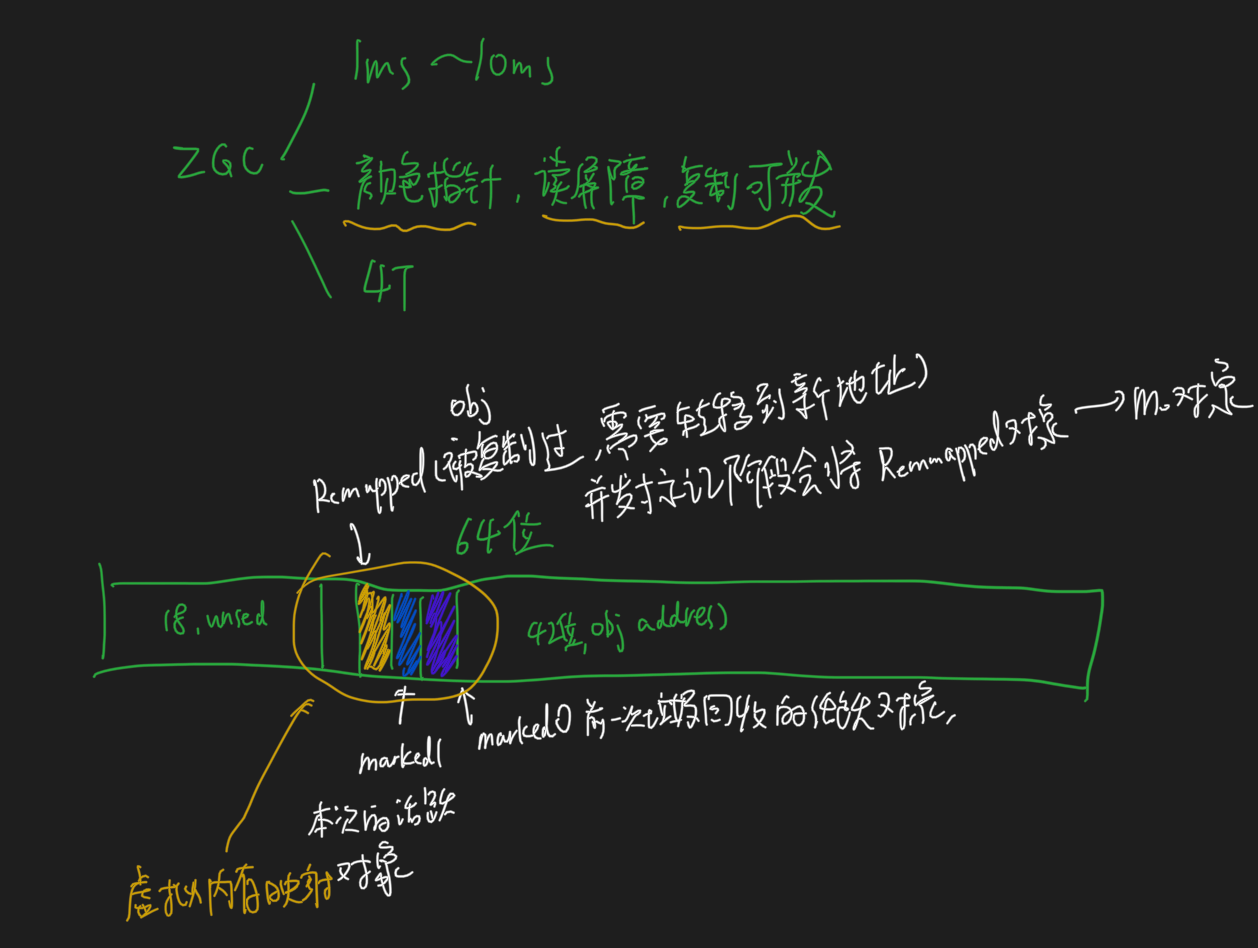 1ms ~10ms
ZGC
颜色指针，读屏障，复制可并发
4T
obj
Remapped(被复制过，需要转移到新地址)
并发标记阶段会将 Remmapped对象 → m0对象
64位
18, unsed
42位, obj addres)
marked0 前一次垃圾回收的活跃对象,
marked1
本次的活跃
对象
虚拟内存映射